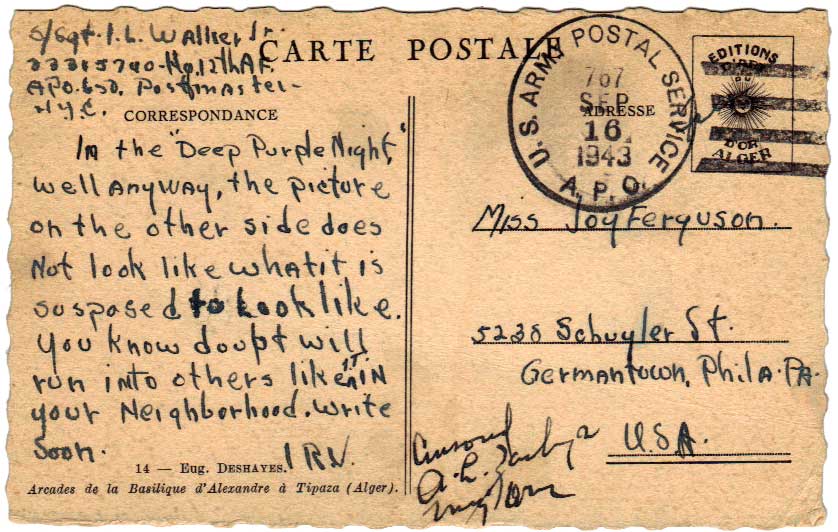 S/Sgt. I. L. Walker Jr.
33315740-Hq. 12th A.F.
APO. 650, Postmaster-
N.Y.C.
CARTE POSTALE
CORRESPONDANCE
In the "Deep Purple Night,"
well anyway, the picture
on the other side does
Not look like what it is
susposed to look like.
You know doupt will
run into others like IT IN
your Neighborhood. Write
soon.
IRV.
14 — Eug. DESHAYES.
Arcades de la Basilique d'Alexandre à Tipaza (Alger).
U.S. ARMY POSTAL SERVICE
767
SEP
16
1943
A.P.O.
ADRESSE
EDITIONS
D'OR
ALGER
Miss Joy Ferguson.
5238 Schuyler St.
Germantown, Phila. Pa.
U.S.A.
Censored
A. L.